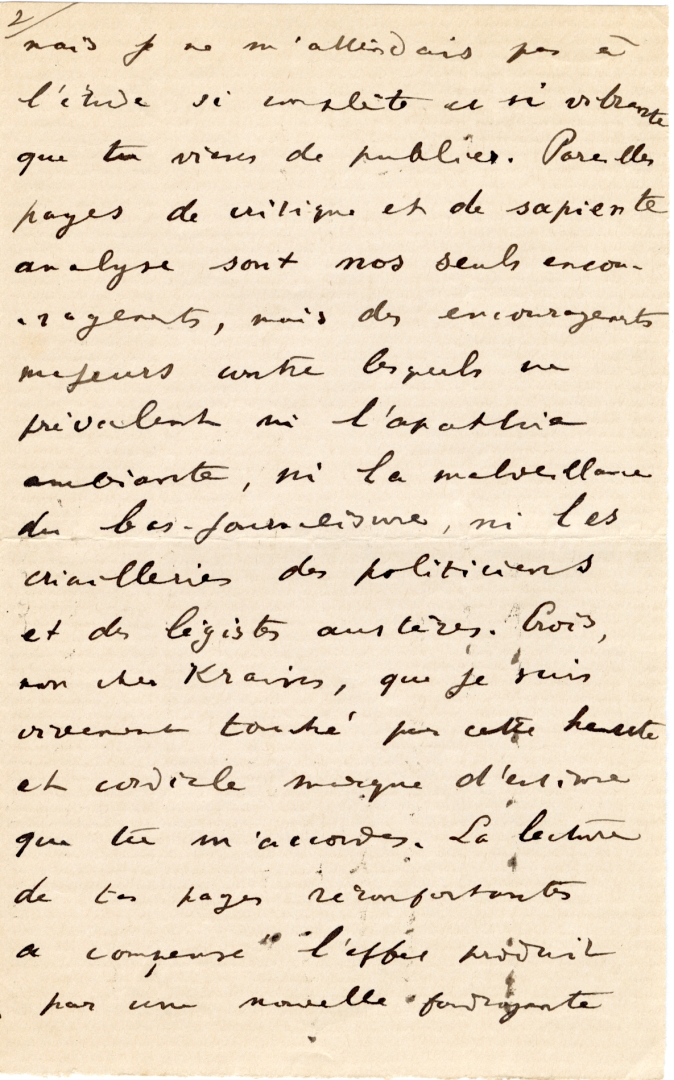 2/
mais je ne m'attendais pas à
l'étude si complète et si vibrante
que tu viens de publier. Pareilles
pages de critique et de sapiente
analyse sont nos seuls encou-
ragements, mais des encouragements
majeurs contre lesquels ne
prévalent ni l'apathie
ambiante, ni la malveillance
du bas-journalisme, ni les
criailleries des politiciens
et des légistes austères. Crois,
mon cher Krains, que je suis
vivement touché par cette haute
et cordiale marque d'estime
que tu m'accordes. La lecture
de tes pages réconfortantes
a compensé l'effet produit
par une nouvelle foudroyante